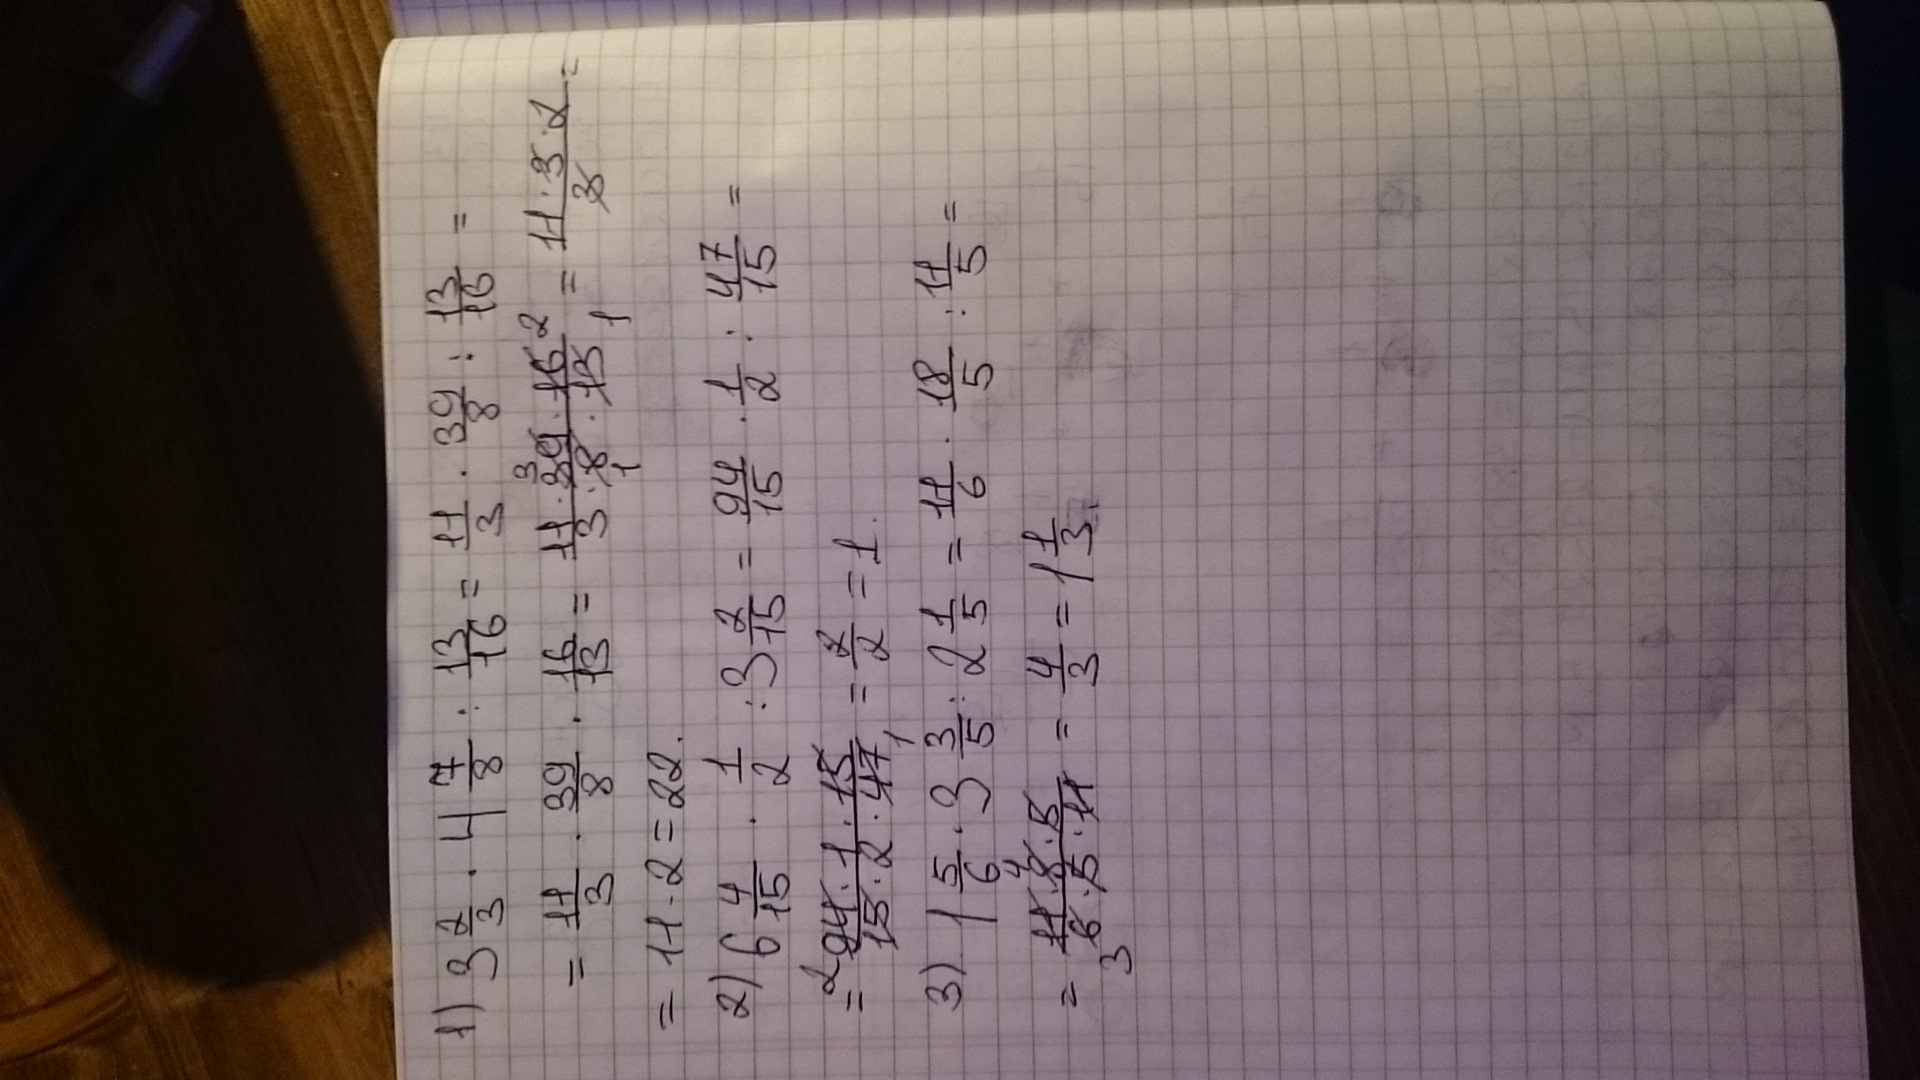 1) 3 2/3 · 4 7/8 : 13/16 = 11/3 · 39/8 : 13/16 =
= 11/3 · 39/8 · 16/13 = 11·39·16/3·8·13 = 11·3·2/3 =
3 2
1 1
= 11·2=22.
2) 6 4/15 · 1/2 : 3 2/15 = 94/15 · 1/2 : 47/15 =
= 94·1·15/15·2·47 = 2/2 = 1.
2
1
3) 1 5/6 · 3 3/5 : 2 1/5 = 11/6 · 18/5 : 11/5 =
= 11·8·5/6·5·11 = 4/3 = 1 1/3.
4
3